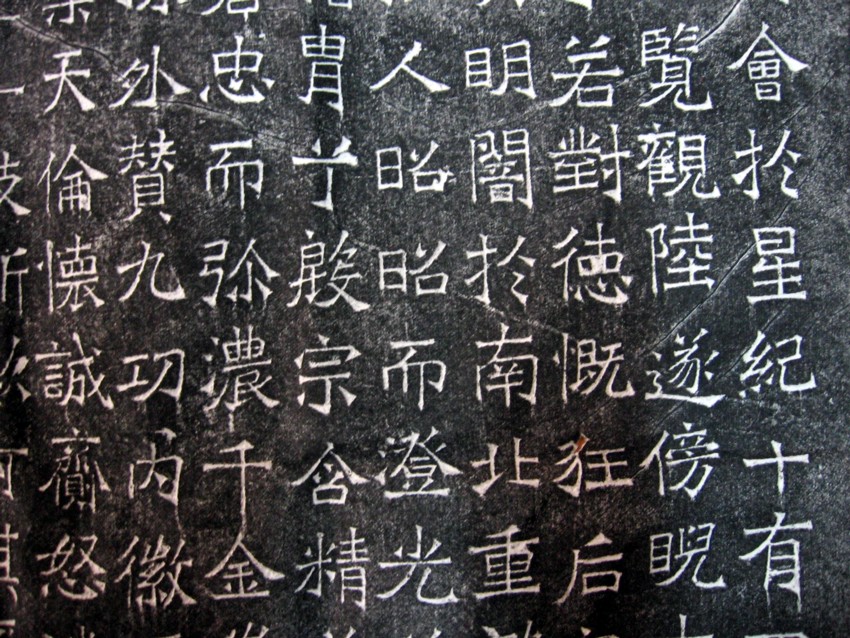 會於星紀十有
覽觀陸遂傍睨
若對徳慨狂后
明闇於南北重
人昭昭而澄光
胄兮殷宗含精
忠而弥濃千金
外贊九功內徽
天倫懷誠怒